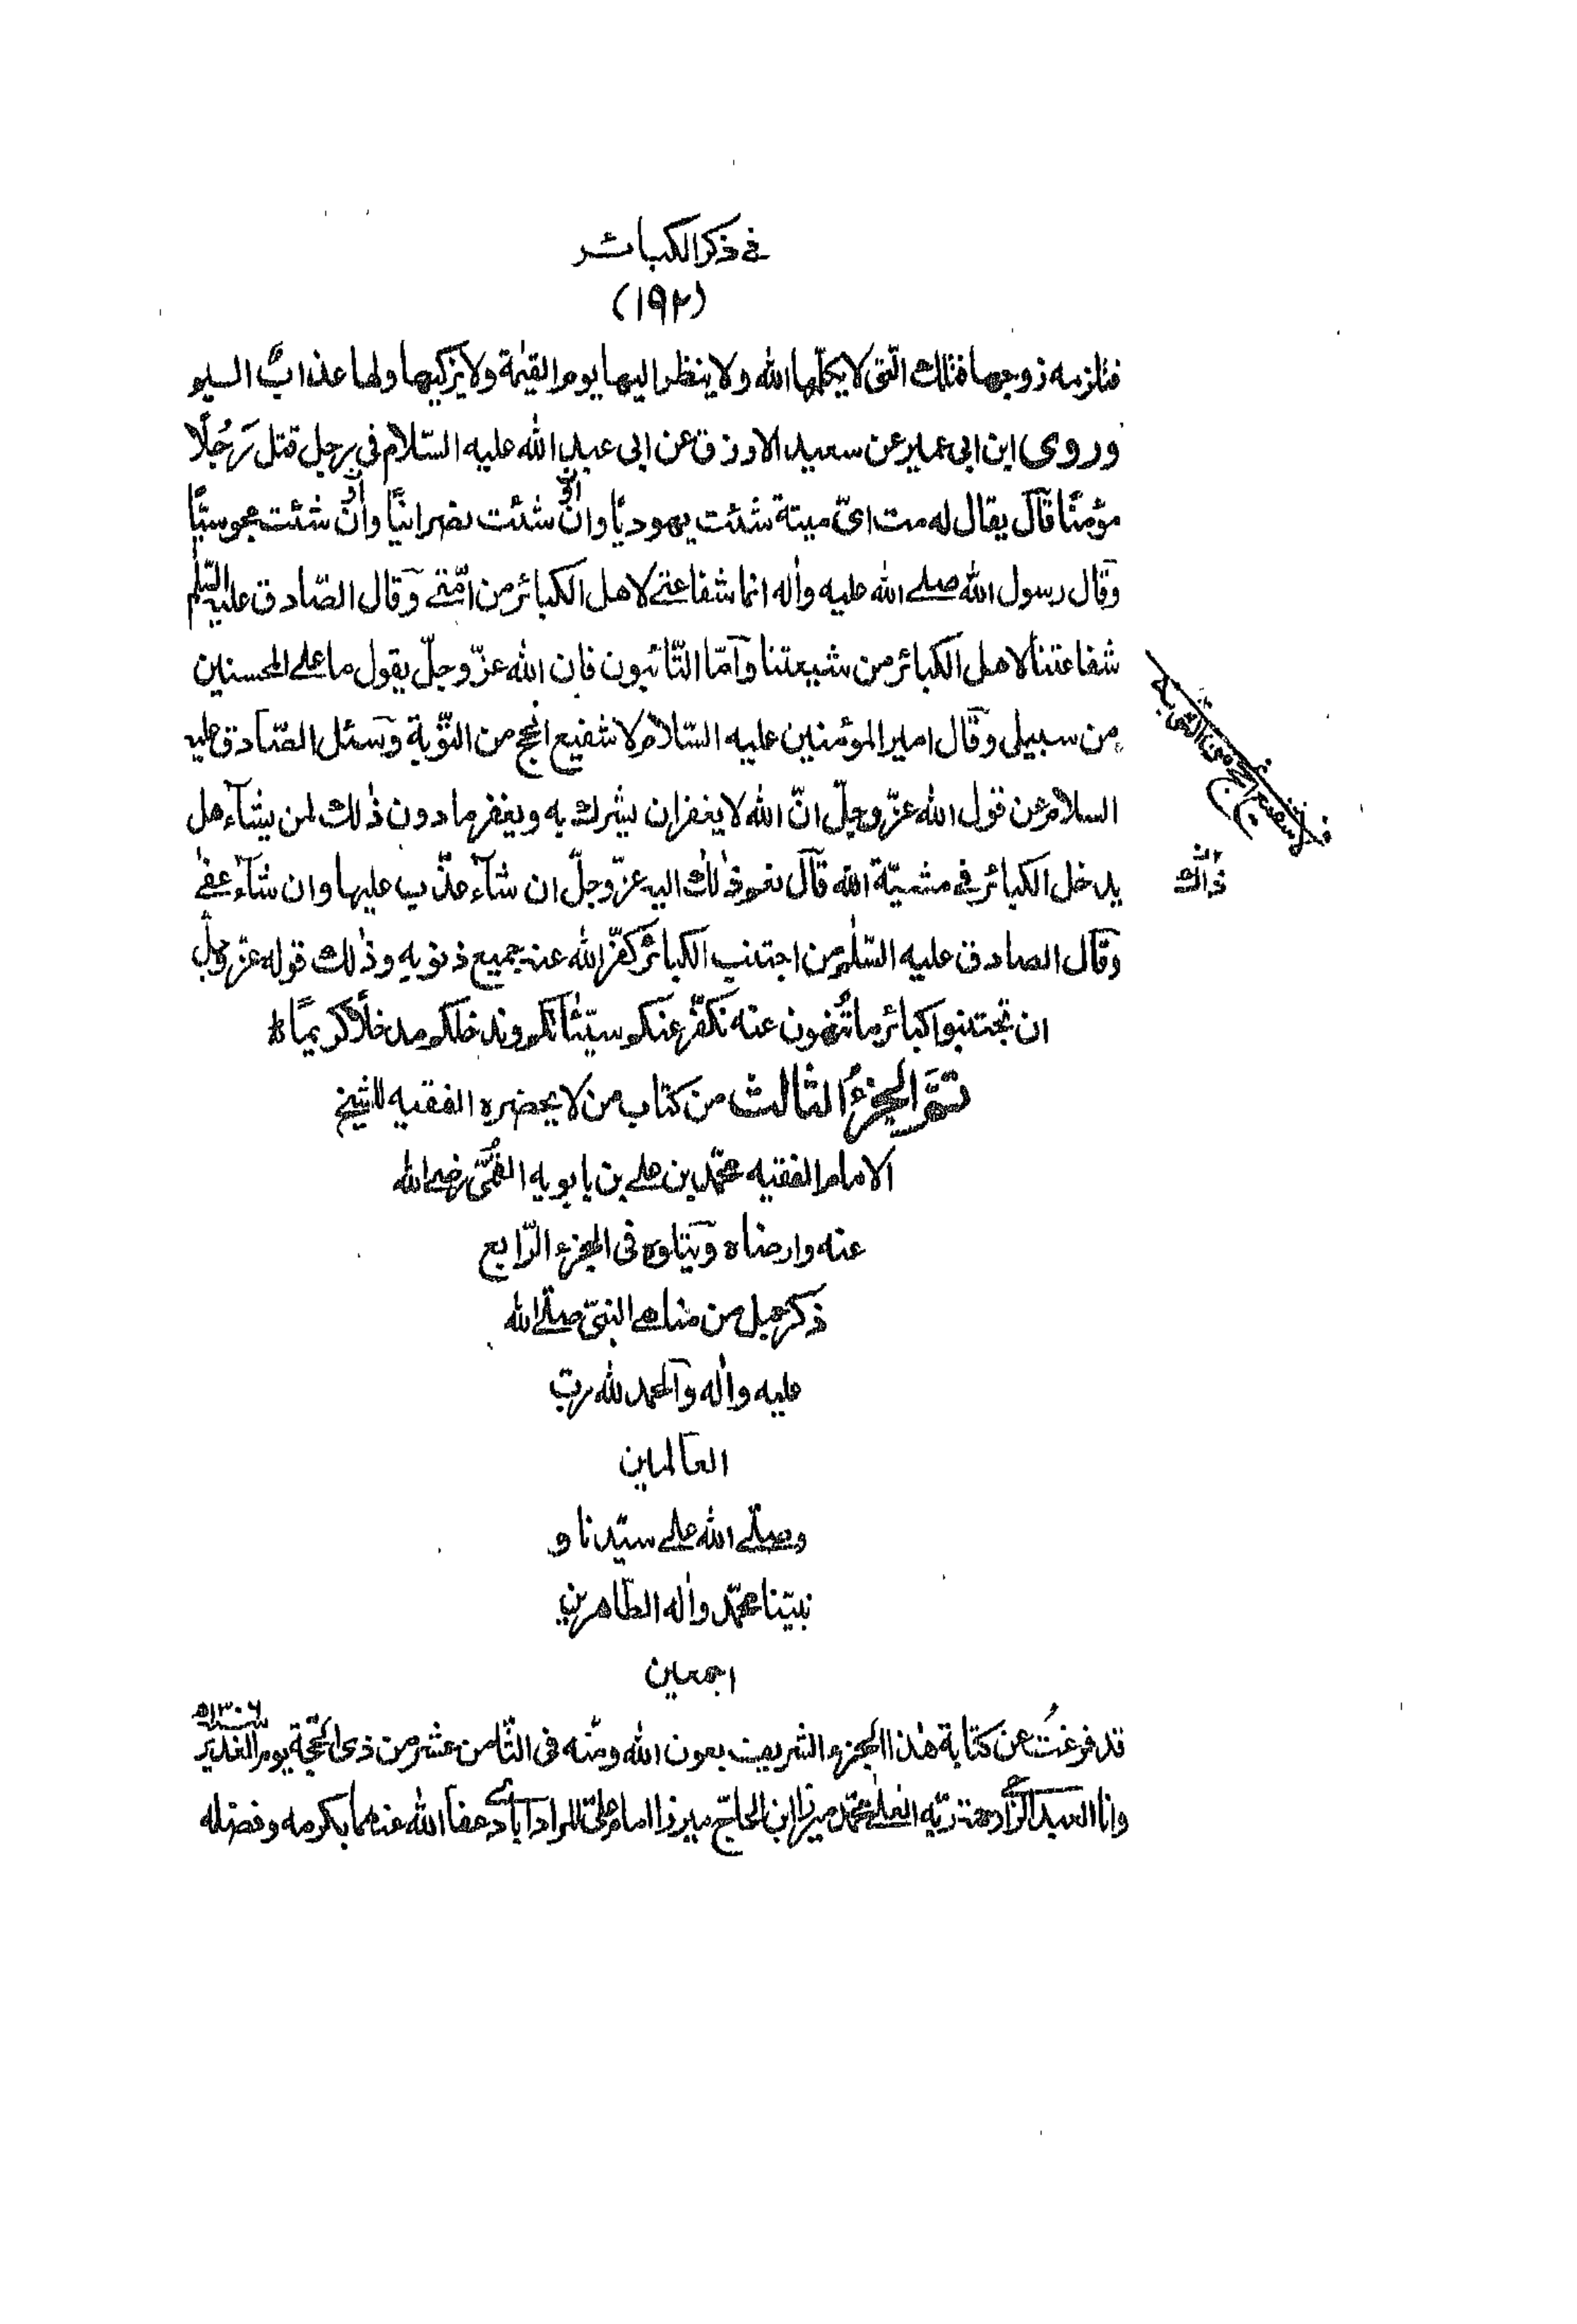 في ذكر الكبائر
(١٩٢)
فتلزمه زوجها فتلك الّتى لا يكلّمها الله ولا ينظر اليها يوم القيٰمة ولا يزكيها ولها عذابٌ اليم
وروى ابن ابى عمير عن سعيد الازرق عن ابى عبد الله عليه السّلام فى رجل قتل رَجُلًا
مؤمنًا قال يقال له مت اىّ ميتة شئت يهوديًا وانْ شئت نصرانيًّا وانْ شئت مجوسيًّا
وقال رسول الله صلے الله عليه واٰله انما شفاعتى لاهل الكبائر من امّتے وقال الصّادق عليه السّلم
شفاعتنا لاهل الكبائر من شيعتنا وامّا التّائبون فان الله عزّ وجلّ يقول ما على المحسنين
من سبيل وقال امير المؤمنين عليه السّلام لا شفيع انجح من التّوبة وسئل الصّادق عليه
السلام عن قول الله عزّ وجلّ انّ الله لا يغفر ان يشرك به ويغفر ما دون ذٰلك لمن يشآء هل
يدخل الكبائر في مشيّة الله قال نعم ذٰلك اليه عزّ وجلّ ان شآء عذّب عليها وان شآء عفٰى
وقال الصادق عليه السّلٰم من اجتنب الكبائر كفّر الله عنه جميع ذنوبه وذٰلك قوله عزّ وجلّ
ان تجتنبوا كبائر ما تُنهون عنه نكفّر عنكم سيّئاتكم وندخلكم مدخلًا كريمًا
لا شفيع انجح من التوبة
ذٰلك
تمَّ الجزءُ الثالث من كتاب من لا يحضره الفقيه للشيخ
الامام الفقيه محمّد بن علے بن بابويه القُمّى رضے الله
عنه وارضاه ويتلوه فى الجزء الرّابع
ذكر جمل من مناهے النبىّ صلّے الله
عليه واٰله والحمد لله ربّ
العالمين
وصلّے الله علے سيّدنا و
نبيّنا محمّد واٰله الطّاهرين
اجمعين
قد فرغتُ عن كتابة هٰذا الجزء الشريف بعون الله ومنّه فى الثّامن عشر من ذى الحجّة يوم الغدير سنة ١٣٠۶ه
وانا العبد الرّاجى رحمة ربّه العلے محمّد ميرزا ابن الحاجّ ميرزا امام علىّ عفا الله عنهما بكرمه وفضله